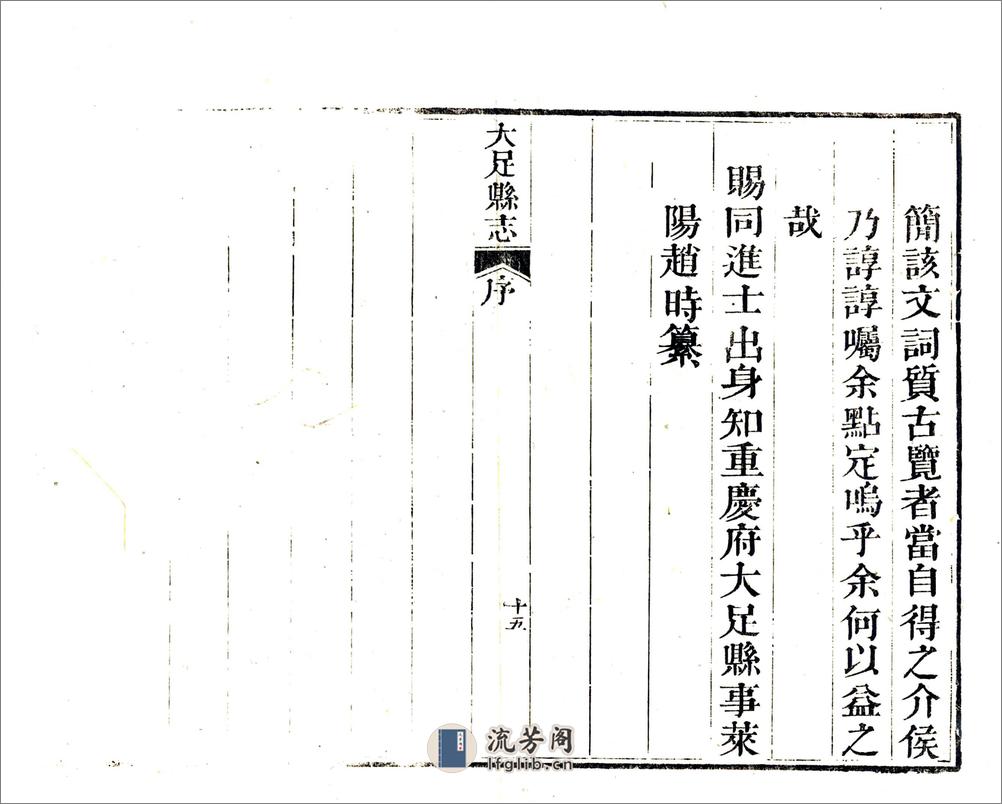 簡該文詞質古覽者當自得之介侯
乃諄諄囑余點定嗚乎余何以益之
哉
賜同進士出身知重慶府大足縣事萊
陽趙時纂
大足縣志
序
十五
流芳阁
lfglib.cn